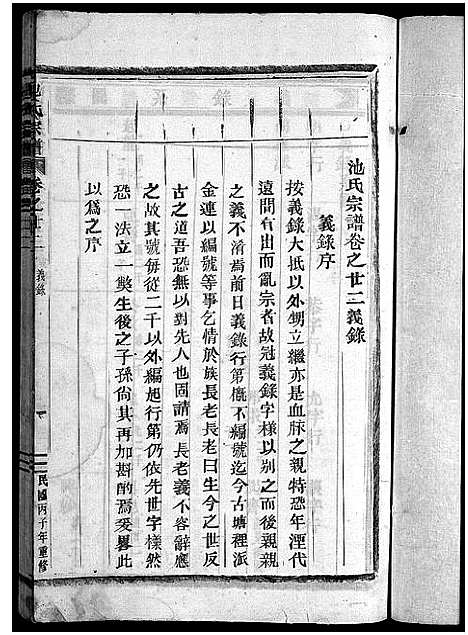 池氏宗譜卷之廿二義錄
義錄序
按義錄大抵以外甥立繼亦是血脉之親特恐年湮代
遠間有出而亂宗者故冠義錄字樣以别之而後親親
之義不淆焉前日義錄行第槪不編號迄今古塘裡派
金連以編號等事乞情於族長老長老曰生今之世反
古之道吾恐無以對先人也固請焉長老義不容辭應
之故其號每從二千以外編起行第仍依先世字樣然
恐一法立一獘生後之子孫尙其再加斟酌焉爰畧此
以爲之序
池氏宗譜
卷之廿二
義錄
民國丙子年重修